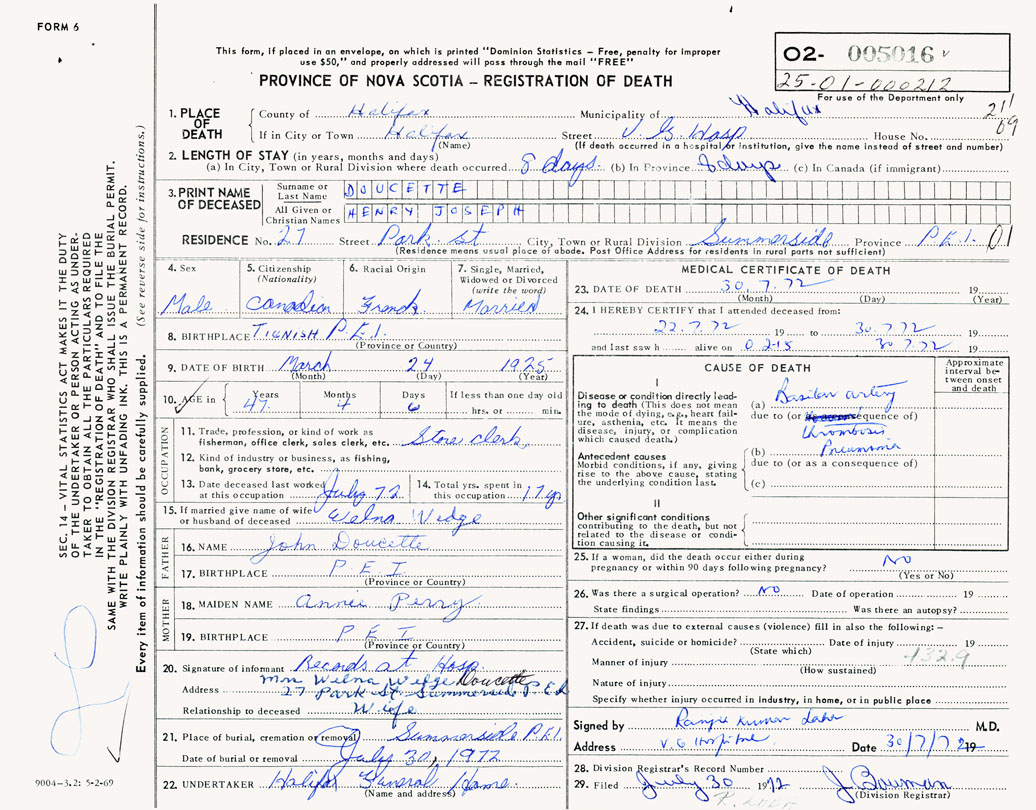 FORM 6
This form, if placed in an envelope, on which is printed "Dominion Statistics – Free, penalty for improper
use $50," and properly addressed will pass through the mail "FREE"
PROVINCE OF NOVA SCOTIA – REGISTRATION OF DEATH
02- 005016
25-01-000212
For use of the Department only
SEC. 14 – VITAL STATISTICS ACT MAKES IT THE DUTY
OF THE UNDERTAKER OR PERSON ACTING AS UNDER-
TAKER TO OBTAIN ALL THE PARTICULARS REQUIRED
IN THE "REGISTRATION OF DEATH" AND TO FILE THE
SAME WITH THE DIVISION REGISTRAR WHO SHALL ISSUE THE BURIAL PERMIT.
WRITE PLAINLY WITH UNFADING INK. THIS IS A PERMANENT RECORD.
Every item of information should be carefully supplied. (See reverse side for instructions.)
1. PLACE OF DEATH
County of Halifax Municipality of Halifax
If in City or Town Halifax Street V. G. Hosp House No.
(Name) (If death occurred in a hospital or institution, give the name instead of street and number)
2. LENGTH OF STAY (in years, months and days)
(a) In City, Town or Rural Division where death occurred 8 days. (b) In Province 8 days (c) In Canada (if immigrant)
3. PRINT NAME OF DECEASED
Surname or Last Name DOUCETTE
All Given or Christian Names HENRY JOSEPH
RESIDENCE No. 27 Street Park St City, Town or Rural Division Summerside Province P.E.I. 01
(Residence means usual place of abode. Post Office Address for residents in rural parts not sufficient)
4. Sex
Male
5. Citizenship (Nationality)
Canadian
6. Racial Origin
French
7. Single, Married, Widowed or Divorced (write the word)
Married
8. BIRTHPLACE TIGNISH P.E.I.
(Province or Country)
9. DATE OF BIRTH March 24 1925
(Month) (Day) (Year)
10. AGE in Years 47 Months 4 Days 6 If less than one day old
hrs. or min.
OCCUPATION
11. Trade, profession, or kind of work as
fisherman, office clerk, sales clerk, etc. Store clerk
12. Kind of industry or business, as fishing,
bank, grocery store, etc.
13. Date deceased last worked
at this occupation July 72
14. Total yrs. spent in
this occupation 17 yrs
15. If married give name of wife
or husband of deceased Welna Wedge
FATHER
16. NAME John Doucette
17. BIRTHPLACE P E I
(Province or Country)
MOTHER
18. MAIDEN NAME Annie Perry
19. BIRTHPLACE P E I
(Province or Country)
20. Signature of informant Records at Hosp
Mrs Welna Wedge Doucette
Address 27 Park St. Summerside P E I
Relationship to deceased Wife
21. Place of burial, cremation or removal Summerside P.E.I.
Date of burial or removal July 30, 1972
22. UNDERTAKER Halifax Funeral Home.
(Name and address)
9004-3.2: 5-2-69
MEDICAL CERTIFICATE OF DEATH
23. DATE OF DEATH 30.7.72 19
(Month) (Day) (Year)
24. I HEREBY CERTIFY that I attended deceased from:
22.7.72 19 to 30.7.72
and last saw h alive on 02-15 30 7.72 19
CAUSE OF DEATH
Approximate interval between onset and death
I
Disease or condition directly lead-
ing to death (This does not mean
the mode of dying, e.g., heart fail-
ure, asthenia, etc. It means the
disease, injury, or complication
which caused death.)
(a) Basilar artery
due to (or as a consequence of)
thrombosis
Antecedent causes
Morbid conditions, if any, giving
rise to the above cause, stating
the underlying condition last.
(b) Pneumonia
due to (or as a consequence of)
(c)
II
Other significant conditions
contributing to the death, but not
related to the disease or condi-
tion causing it.
25. If a woman, did the death occur either during
pregnancy or within 90 days following pregnancy? NO
(Yes or No)
26. Was there a surgical operation? NO Date of operation 19
State findings Was there an autopsy?
27. If death was due to external causes (violence) fill in also the following: –
Accident, suicide or homicide? Date of injury 19
(State which)
432.9
Manner of injury
(How sustained)
Nature of injury
Specify whether injury occurred in industry, in home, or in public place
Signed by Kumar M.D.
Address V.G Hospital Date 30/7/72 19
28. Division Registrar's Record Number
29. Filed July 30 1972 J. Bowman
(Division Registrar)